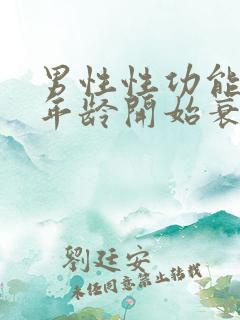 男性性功能
年龄開始衰
劉廷安
未经同意禁止转载